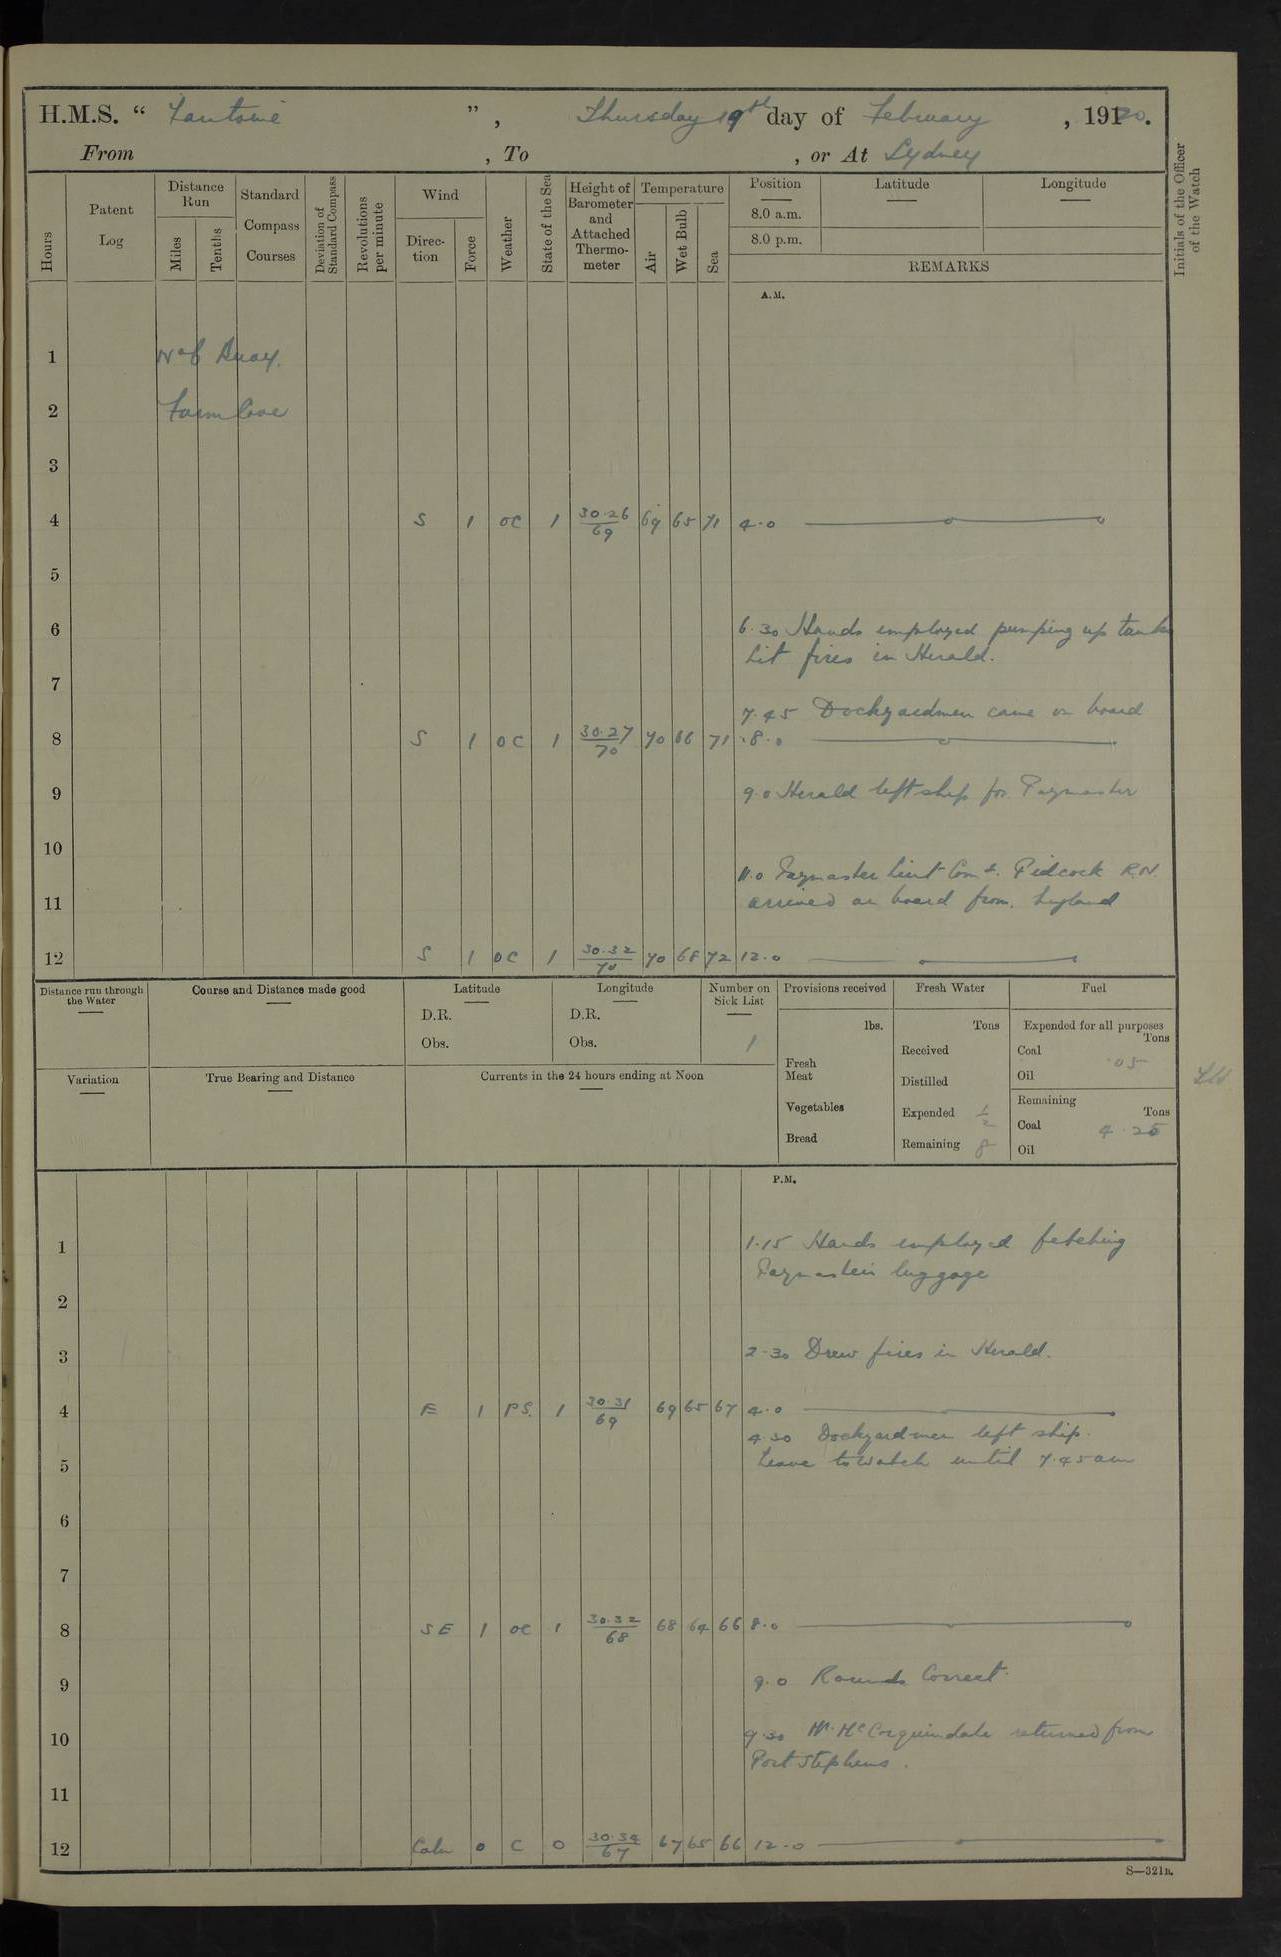 H.M.S. “ Fantome ”, Thursday 19th day of February , 1920.
From , To , or At Sydney
Hours
Patent Log
Distance Run
Miles
Tenths
Standard Compass Courses
Deviation of Standard Compass
Revolutions per minute
Wind
Direction
Force
Weather
State of the Sea
Height of Barometer and Attached Thermometer
Temperature
Air
Wet Bulb
Sea
Position
8.0 a.m.
8.0 p.m.
Latitude
Longitude
REMARKS
Initials of the Officer of the Watch
A.M.
1 No 6 Buoy.
2 Farm Cove
3
4 S 1 OC 1 30.26/69 69 65 71 4.0
5
6 6.30 Hands employed pumping up tanks
Lit fires in Herald.
7
7.45 Dockyardmen came on board
8 S 1 OC 1 30.27/70 70 66 71 8.0
9 9.0 Herald left ship for Paymaster
10
11.0 Paymaster Lieut Com r. Pidcock R.N.
11 arrived on board from England
12 S 1 OC 1 30.32/70 70 68 72 12.0
Distance run through the Water
Course and Distance made good
Latitude
D.R.
Obs.
Longitude
D.R.
Obs.
Number on Sick List
1
Provisions received
lbs.
Fresh Meat
Vegetables
Bread
Fresh Water
Tons
Received
Distilled
Expended 1/2
Remaining 8
Fuel
Expended for all purposes
Tons
Coal .05
Oil
Remaining
Tons
Coal 4.25
Oil
Variation
True Bearing and Distance
Currents in the 24 hours ending at Noon
P.M.
1 1.15 Hands employed fetching
Paymasters luggage
2
3 2.30 Drew fires in Herald.
4 E 1 PS. 1 30.31/69 69 65 67 4.0
4.30 Dockyardmen left ship.
5 Leave to watch until 7.45 am
6
7
8 SE 1 OC 1 30.32/68 68 64 66 8.0
9 9.0 Rounds Correct.
10 9.30 Mr. McCorquindale returned from
Port Stephens.
11
12 Calm 0 C 0 30.34/67 67 65 66 12.0
S—321B.